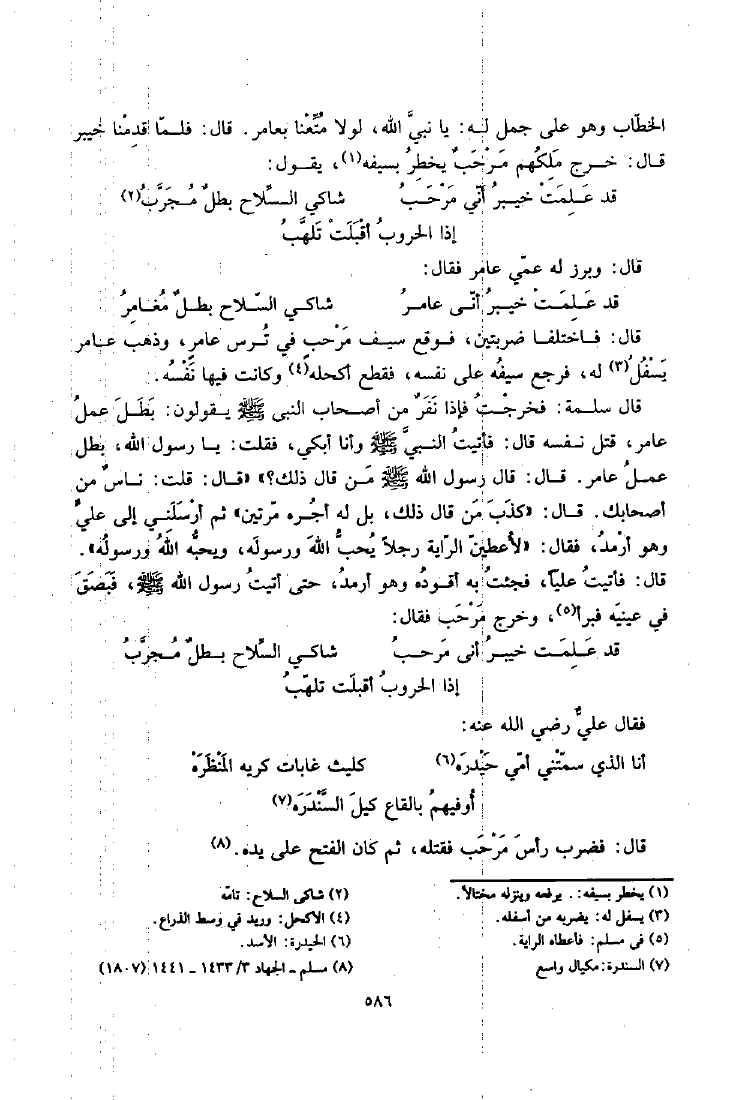 الخطّاب وهو على جمل له: يا نبيَّ الله، لولا مُتِّعْنا بعامر. قال: فلمّا قدِمْنا خيبر
قال: خرج مَلِكُهم مَرْحَبٌ يخطِرُ بسيفه(١)، يقول:
قد عَلِمَتْ خيبرُ أنّي مَرْحَبُ شاكي السِّلاح بطلٌ مُجَرَّبُ(٢)
إذا الحروبُ أقْبَلَتْ تَلهَّبُ
قال: وبرز له عمّي عامر فقال:
قد عَلِمَتْ خيبرُ أنّى عامرُ شاكي السّلاح بطلٌ مُغامِرُ
قال: فاختلفا ضربتين، فوقع سيف مَرْحبٍ في تُرس عامرٍ، وذهب عامر
يَسْفُلُ(٣) له، فرجع سيفُه على نفسه، فقطع أكحله(٤) وكانت فيها نَفْسُه.
قال سلمة: فخرجْتُ فإذا نَفَرٌ من أصحاب النبي ﷺ يقولون: بَطَلَ عملُ
عامر، قتل نفسه قال: فأتيتُ النبيَّ ﷺ وأنا أبكي، فقلت: يا رسول الله، بطل
عملُ عامر. قال: قال رسول الله ﷺ مَن قال ذلك؟» «قال: قلت: ناسٌ من
أصحابك. قال: «كذَبَ مَن قال ذلك، بل له أجُره مرّتين» ثم أرْسَلَني إلى عليٍّ
وهو أرْمدُ، فقال: «لأعطينّ الرّاية رجلاً يُحبُّ اللهَ ورسولَه، ويحبُّه اللهُ ورسولُه».
قال: فأتيتُ علياً، فجئتُ به أقودُه وهو أرمدُ، حتى أتيتُ رسول الله ﷺ، فَبَصَقَ
في عينيَه فبرأ(٥)، وخرج مَرْحَب فقال:
قد عَلِمَت خيبرُ أنى مَرحبُ شاكي السِّلاح بطلٌ مُجرَّبُ
إذا الحروبُ أقبلَت تلهّبُ
فقال عليٌّ رضي الله عنه:
أنا الذي سمّتْني أمّي حَيْدرَه(٦) كليث غابات كريه المَنْظَرَهْ
أُوفيهمُ بالقاع كيلَ السَّنْدَرَه(٧)
قال: فضرب رأسَ مَرْحَب فقتله، ثم كان الفتح على يده.(٨)
(١) يخطر بسيفه:. يرفعه وينزله مختالاً. (٢) شاكى السلاح: تامّه
(٣) يسفل له: يضربه من أسفله. (٤) الأكحل: وريد في وسط الذراع.
(٥) فى مسلم: فأعطاه الراية. (٦) الحيدرة: الأسد.
(٧) السندرة: مكيال واسع (٨) مسلم ـ الجهاد ٣/ ١٤٣٣ ـ ١٤٤١ (١٨٠٧)
٥٨٦